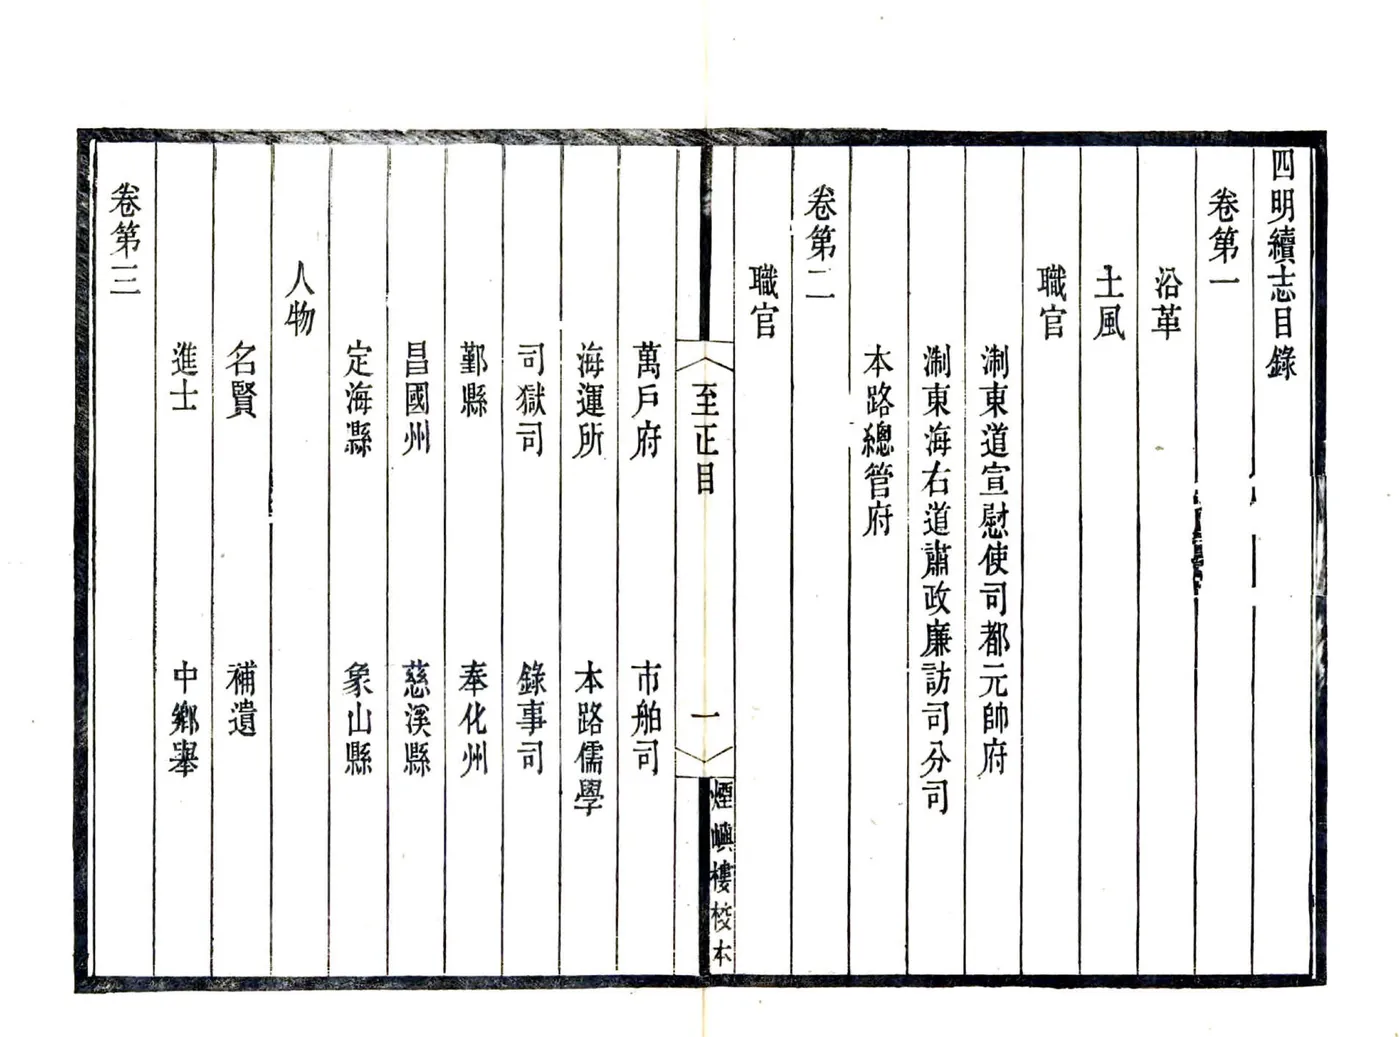 四明續志目錄
卷第一
沿革
土風
職官
淛東道宣慰使司都元帥府
淛東海右道肅政廉訪司分司
本路總管府
卷第二
職官
至正目
一
煙嶼樓校本
萬戶府 市舶司
海運所 本路儒學
司獄司 錄事司
鄞縣 奉化州
昌國州 慈溪縣
定海縣 象山縣
人物
名賢 補遺
進士 中鄉舉
卷第三